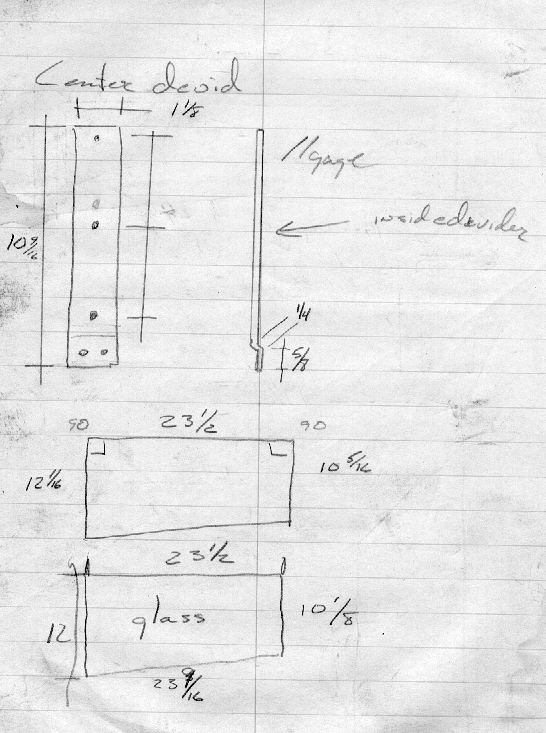 Center devid
1 1/8
11 gage
10 9/16
insidedevider
1/4
5/8
90 23 1/2 90
12 1/16 10 5/16
23 1/2
12 glass 10 1/8
23 9/16